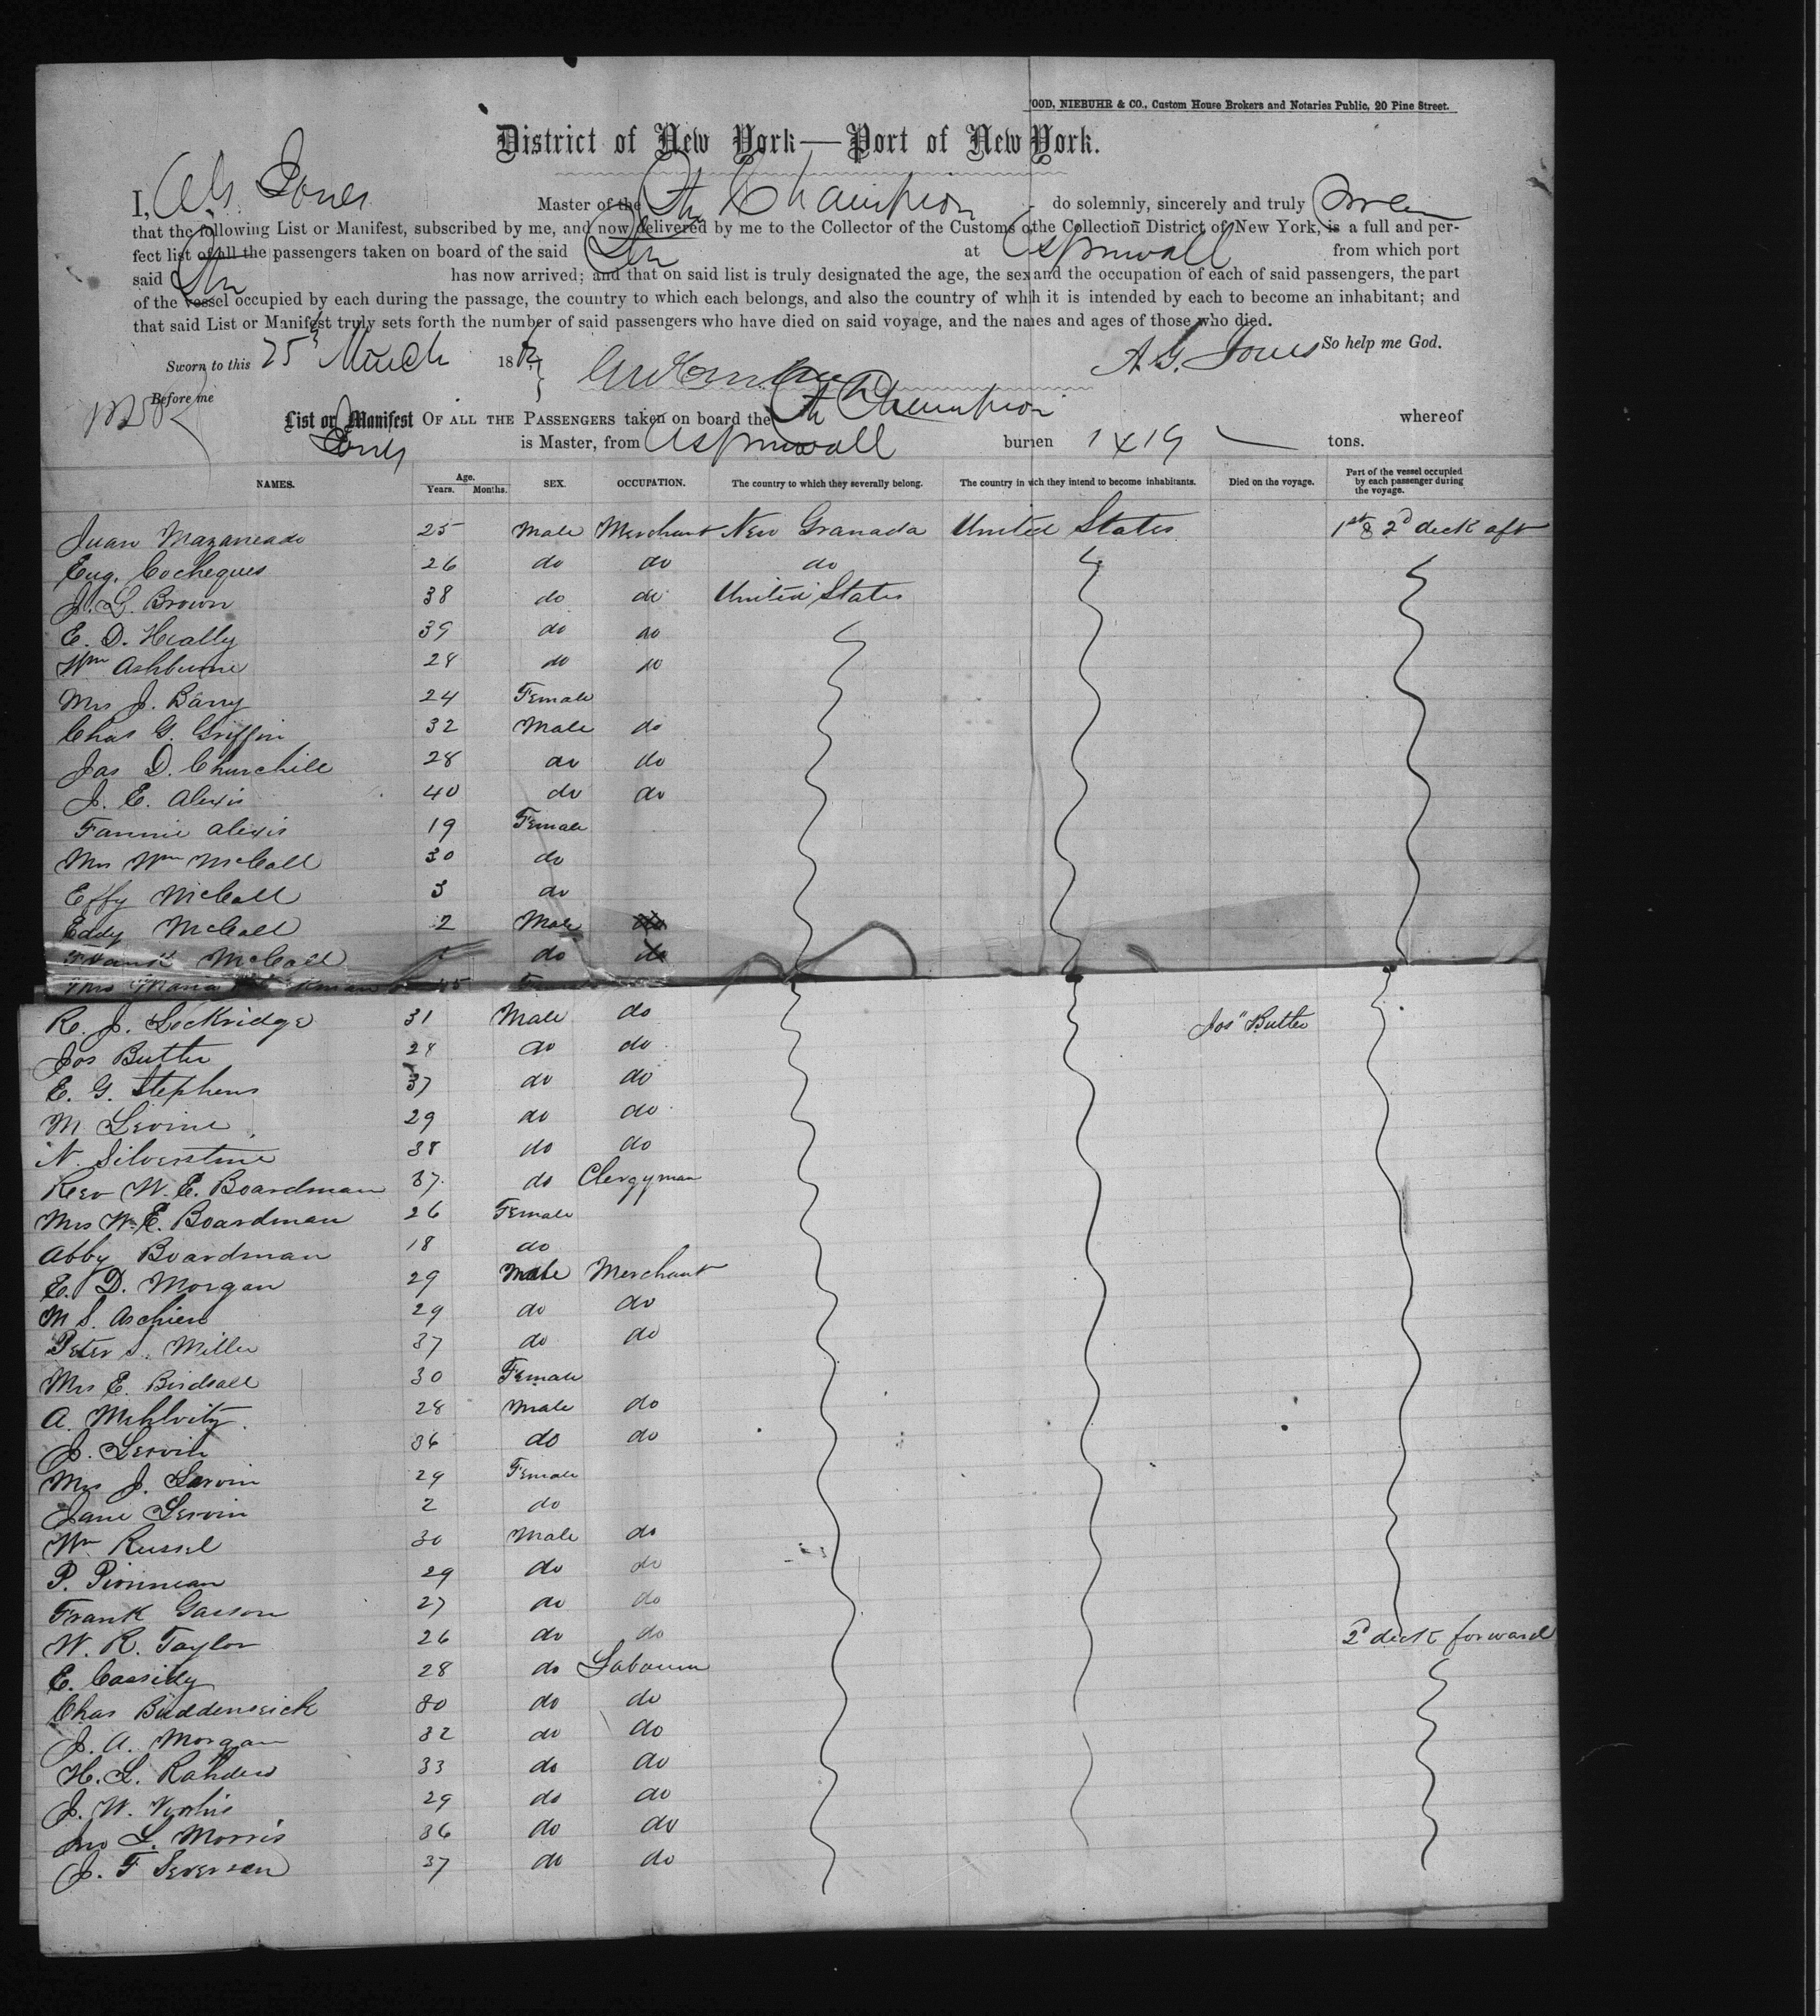 WOOD, NIEBUHR & CO., Custom House Brokers and Notaries Public, 20 Pine Street.
District of New York—Port of New York.
I, A. G. Jones Master of the Str Champion do solemnly, sincerely and truly swear
that the following List or Manifest, subscribed by me, and now delivered by me to the Collector of the Customs o the Collection District of New York, is a full and per-
fect list of all the passengers taken on board of the said Str at Aspinwall from which port
said Str has now arrived; and that on said list is truly designated the age, the sex and the occupation of each of said passengers, the part
of the vessel occupied by each during the passage, the country to which each belongs, and also the country of whih it is intended by each to become an inhabitant; and
that said List or Manifest truly sets forth the number of said passengers who have died on said voyage, and the names and ages of those who died.
So help me God.
Sworn to this 25 March 186 A. G. Jones
Before me
List or Manifest OF ALL THE PASSENGERS taken on board the Str Champion whereof
Jones is Master, from Aspinwall burden 1419 tons.
NAMES. Age. Years. Months. SEX. OCCUPATION. The country to which they severally belong. The country in wich they intend to become inhabitants. Died on the voyage. Part of the vessel occupied by each passenger during the voyage.
Juan 25 Male Merchant New Granada United States 1st & 2d deck aft
Eug. Cocheques 26 do do do
J. L. Brown 38 do do United States
E. D. Heally 39 do do
Wm Ashburne 28 do do
Mrs J. Barry 24 Female
Chas G. Griffin 32 Male do
Jas D. Churchill 28 do do
J. E. Alexis 40 do do
Fannie Alexis 19 Female
Mrs Wm McCall 30 do
Effy McCall 3 do
Eddy McCall 2 Male
Frank McCall do
Mrs Maria 45
R. J. Lockridge 31 Male do Jos" Butler
Jos Butler 28 do do
E. G. Stephens 37 do do
M Levine 29 do do
N. Silverstine 38 do do
Rev W. E. Boardman 37 do Clergyman
Mrs W. E. Boardman 26 Female
Abby Boardman 18 do
E. D. Morgan 29 Male Merchant
M S. 29 do do
Peter S. Miller 37 do do
Mrs E. Birdsall 30 Female
A. 28 Male do
J. Lervin 36 do do
Mrs J. Lervin 29 Female
Jane Lervin 2 do
Wm Russel 30 Male do
P. Pionnean 29 do do
Frank Gasson 27 do do
W. R. Taylor 26 do do 2d deck forward
E. Cassidy 28 do Labourer
Chas Buddensick 30 do do
J. A. Morgan 32 do do
H. L. Rahders 33 do do
J. W. 29 do do
Jno L. Morris 36 do do
J. F Severson 37 do do